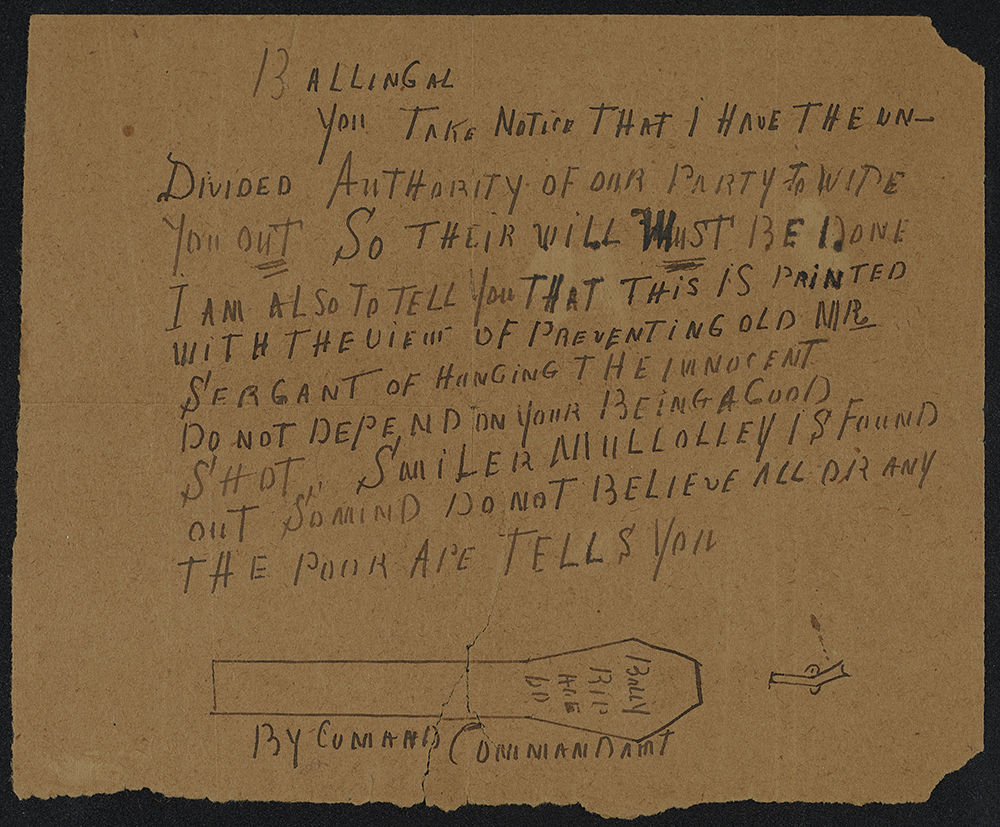 BALLINGAL
YOU TAKE NOTICE THAT I HAVE THE UN-
DIVIDED AUTHORITY OF OUR PARTY TO WIPE
YOU OUT SO THEIR WILL MUST BE DONE
I AM ALSO TO TELL YOU THAT THIS IS PRINTED
WITH THE VIEW OF PREVENTING OLD MR
SERGANT OF HANGING THE INNOCENT
DO NOT DEPEND ON YOUR BEING A GOOD
SHOT,, SMILER MULLOLLEY IS FOUND
OUT SO MIND DO NOT BELIEVE ALL OR ANY
THE POOR APE TELLS YOU
BALLY
RIP
AGE
BY COMAND COMMANDANT